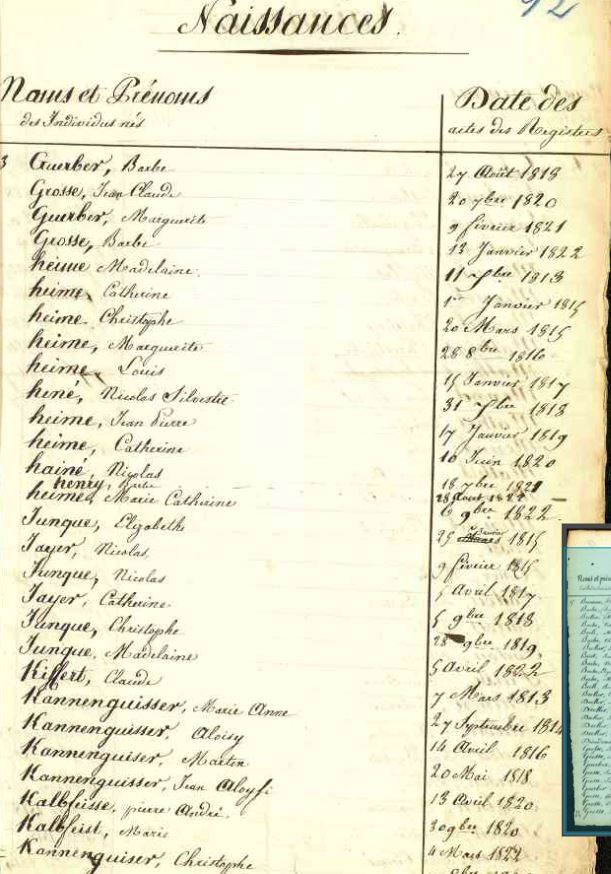 92
Naissances.
Noms et Prénoms
des Individus nés
Date des
actes des Registres
3 Guerber, Barbe 27 Août 1818
Grosse, Jean Claude 20 7bre 1820
Guerber, Marguerite 9 février 1821
Grosse, Barbe 13 Janvier 1822
heime Madelaine. 11 1813
heime, Catherine 1er Janvier 1815
heime Christophe 20 Mars 1815
heime, Marguerite 28 8bre 1816
heime, Louis 15 Janvier 1817
hené, Nicolas Silvestre 31 1818
heime, Jean Pierre 17 Janvier 1819
heime, Catherine 10 Juin 1820
hainé, Nicolas 18 7bre 1821
henry, 28 Août 1822
heime, Marie Catherine 6 9bre 1822
Junque, Elizabethe 25 1815
Jayer, Nicolas 9 février 1815
Junque, Nicolas 5 Avril 1817
Jayer, Catherine 5 9bre 1818
Junque, Christophe 28 9bre 1819
Junque, Madelaine 5 Avril 1822
Kiffert, Claude 7 Mars 1813
Kannenguisser, Marie Anne 27 Septembre 1814
Kannenguisser, Aloisy 14 Avril 1816
Kannenguiser, Martin 20 Mai 1818
Kannenguisser, Jean Aloysi 13 Avril 1820
Kalbfeisse, pierre André. 30 9bre 1820
Kalbfeist, Marie 4 Mars 1822
Kannenguiser, Christophe